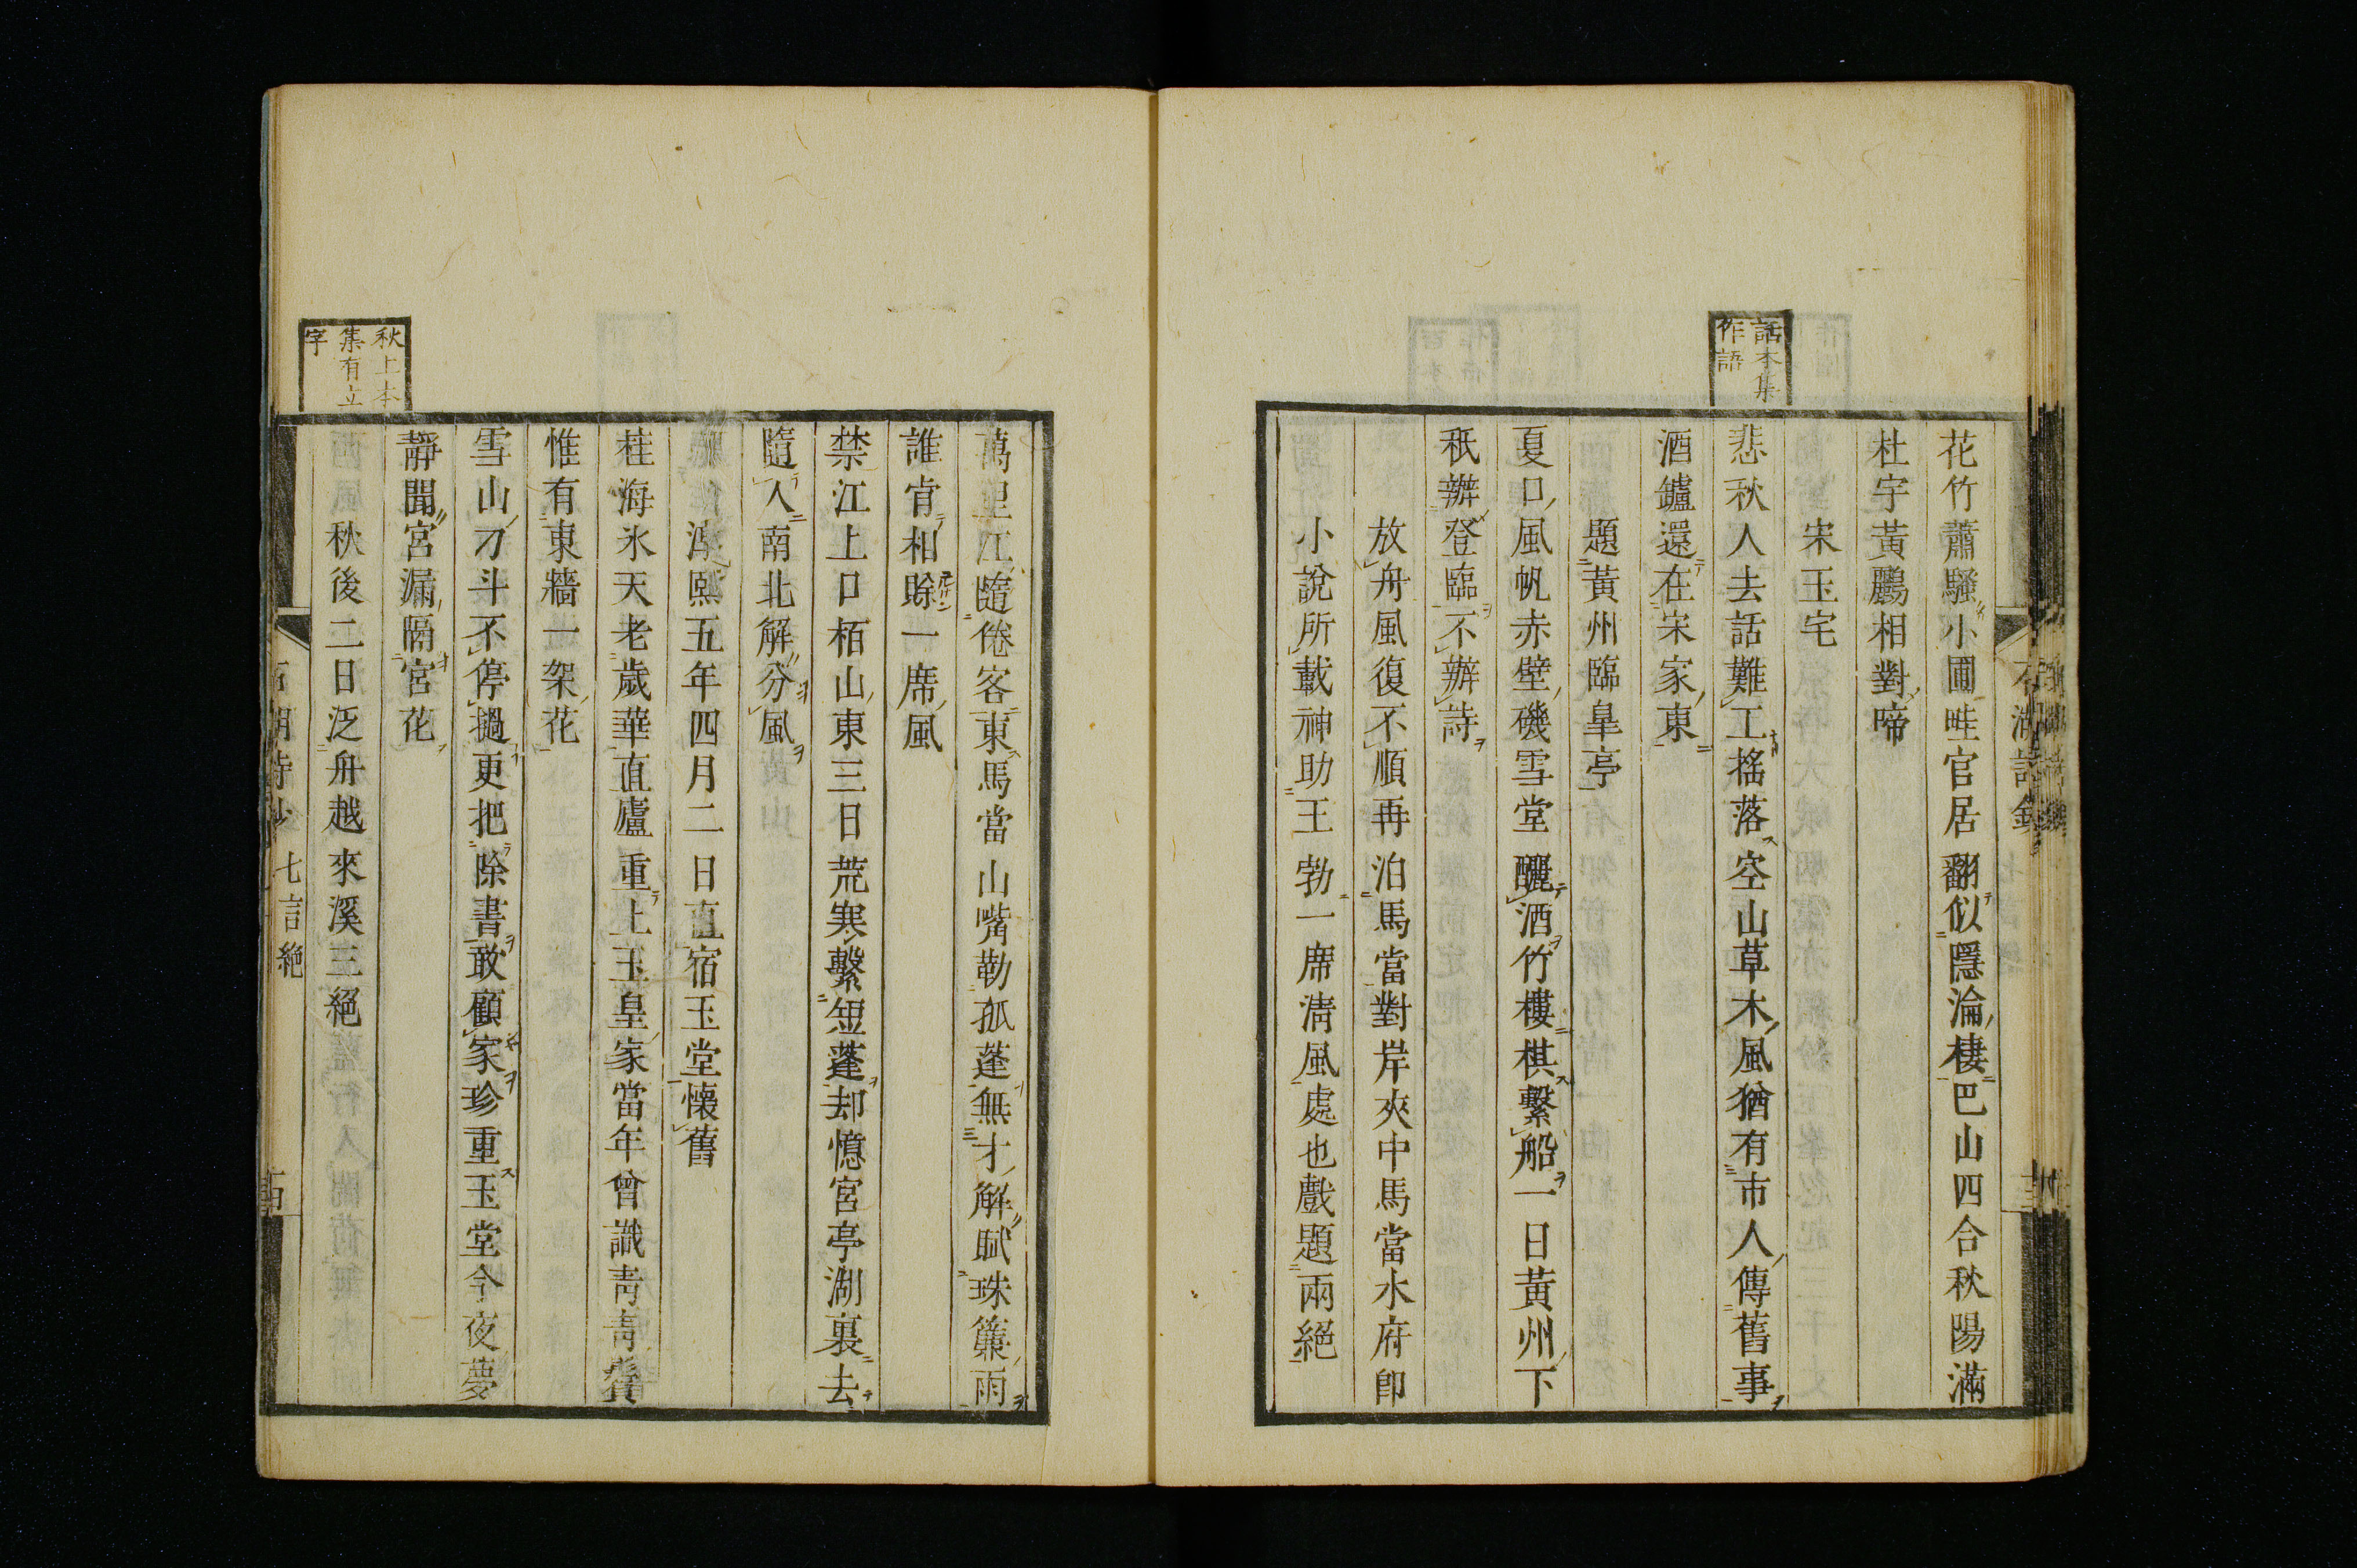 話本集
作語
花竹蕭騷小圃畦官居翻似隱淪棲巴山四合秋陽滿
杜宇黃鸝相對啼
宋玉宅
悲秋人去話難工搖落空山草木風猶有市人傳舊事
酒鑪還在宋家東
題黃州臨皐亭
夏口風帆赤壁磯雪堂釃酒竹樓棋繫船一日黃州下
秖辦登臨不辦詩
放舟風復不順再泊馬當對岸夾中馬當水府卽
小說所載神助王勃一席淸風處也戲題兩絕
萬里江隨倦客東馬當山嘴勒孤蓬無才解賦珠簾雨
誰肯相賒一席風
禁江上口栢山東三日荒寒繫短蓬却憶宮亭湖裏去
隨人南北解分風
淳熙五年四月二日直宿玉堂懷舊
桂海氷天老歲華直廬重上玉皇家當年曾識靑靑鬢
惟有東牆一架花
雪山刁斗不停撾更把除書敢顧家珍重玉堂今夜夢
靜聞宮漏隔宮花
秋上本
集有立
字
秋後二日泛舟越來溪三絕
石湖詩鈔 七言絕